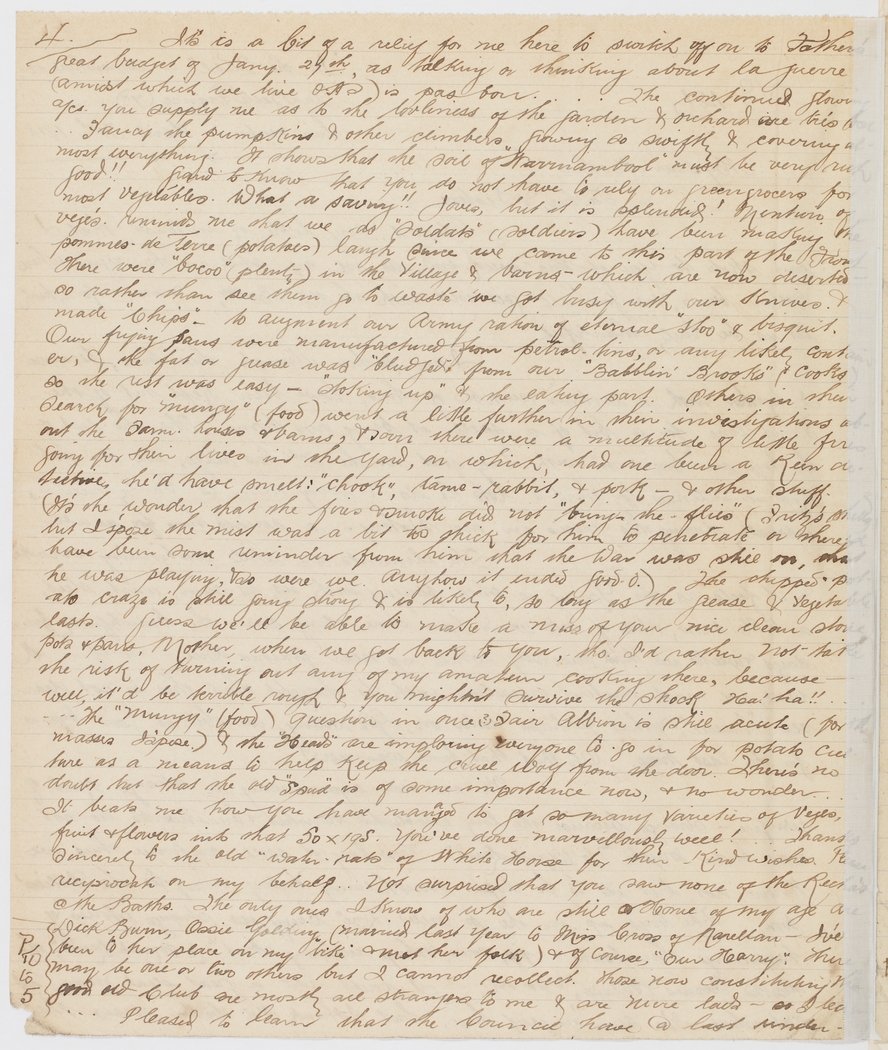 4. It's is a bit of a relief for me here to switch off on to Father
great budget of Jany. 29th, as talking or thinking about la guerre
(amidst which we live ) is pas bon. .... The continued flow
a/cs. you supply me as to the loveliness of the garden & orchard are très
.. Fancy the pumpkins & other climbers growing so swiftly & covering
most everything. It shows that the soil of "Warrnambool" must be very
good!! Grand to know that you do not have to rely on greengrocers for
most vegetables. What a saving!! Joves, but it is splendid! Mention of
veges. reminds me that we as "soldats" (soldiers) have been making the
pommes-de-Terre (potatoes) laugh since we came to this part of the Front
There were "bocoo" (plenty) in the village & barns - which are now deserted
so rather than see them go to waste we got busy with our knives &
made "chips" - to augment our Army ration of eternal "stoo" & bisquit.
Our frying pans were manufactured from petrol-tins, or any likely cont
er, & the fat or grease was "bludged" from our "Babblin' Brooks" (Cooks
so the rest was easy - "stoking up" & the eating part. Others in their
search for "mungy" (food) went a little further in their investigations
out the farm houses & barns, & soon there were a multitude of little
going for their lives in the yard, on which, had one been a keen
, he'd have smelt: "chook", tame-rabbit, & pork - & other stuff.
(It's the wonder that the fires & smoke did not "bring the flies" (Fritz's
but I spose the mist was a bit too thick for him to penetrate or there
have been some reminder from him that the War was still on,
he was playing, & so were we. Anyhow it ended good-o.) The chipped p
ato craze is still going strong & is likely to, so long as the grease & vegetab
lasts. Guess we'll be able to make a mess of your nice clean stov
pots & pans, Mother, when we get back to you, tho' I'd rather not
the risk of turning out any of my amateur cooking there, because -
well, it'd be terrible rough & you mightn't survive the shock Ha! ha!!..
.... The "Mungy" (food) question in once Fair Albion is still acute (for
masses I spose.) & the "Heads" are imploring everyone to go in for potato
ture as a means to help keep the cruel wolf from the door. There's no
doubt but that the old "Spud" is of some importance now, & no wonder...
It beats me how you have managed to get so many varieties of Veges,
fruit & flowers into that 50 x 195. You've done marvellously well! ....
sincerely to the old "water-rats" of White Horse for their kind wishes.
reciprocate on my behalf.. Not surprised that you saw none of the
@ the Baths. The only ones I know of who are still @ Home of my age
Dick Burn, Ossie Golding (married last year to Miss Cross of Narellan - I've
been to her place on my "bike" & met her folk) & of course, "our Harry".
may be one or two others but I cannot recollect. Those now constituting
good old Club are mostly all strangers to me & are mere lads -
.... Pleased to learn that the Council have @ last under-
P.
to
5